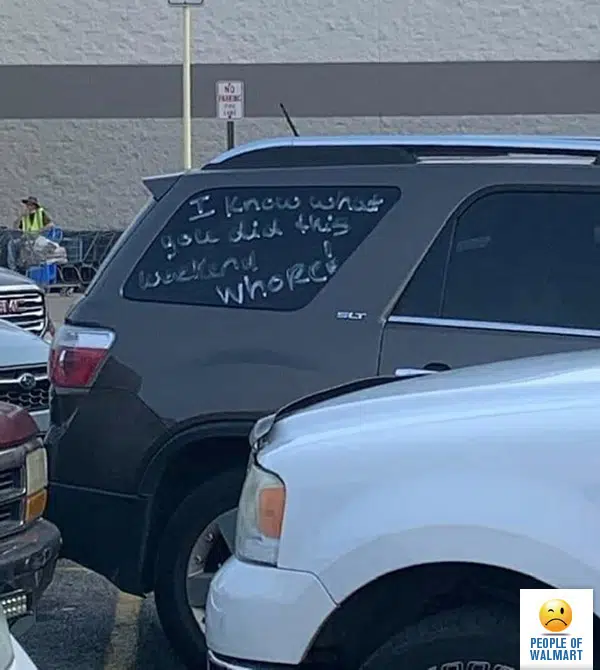 NO
PARKING
FIRE
LANE
I know what
you did this
weekend
WHORE!
SLT
PEOPLE OF
WALMART